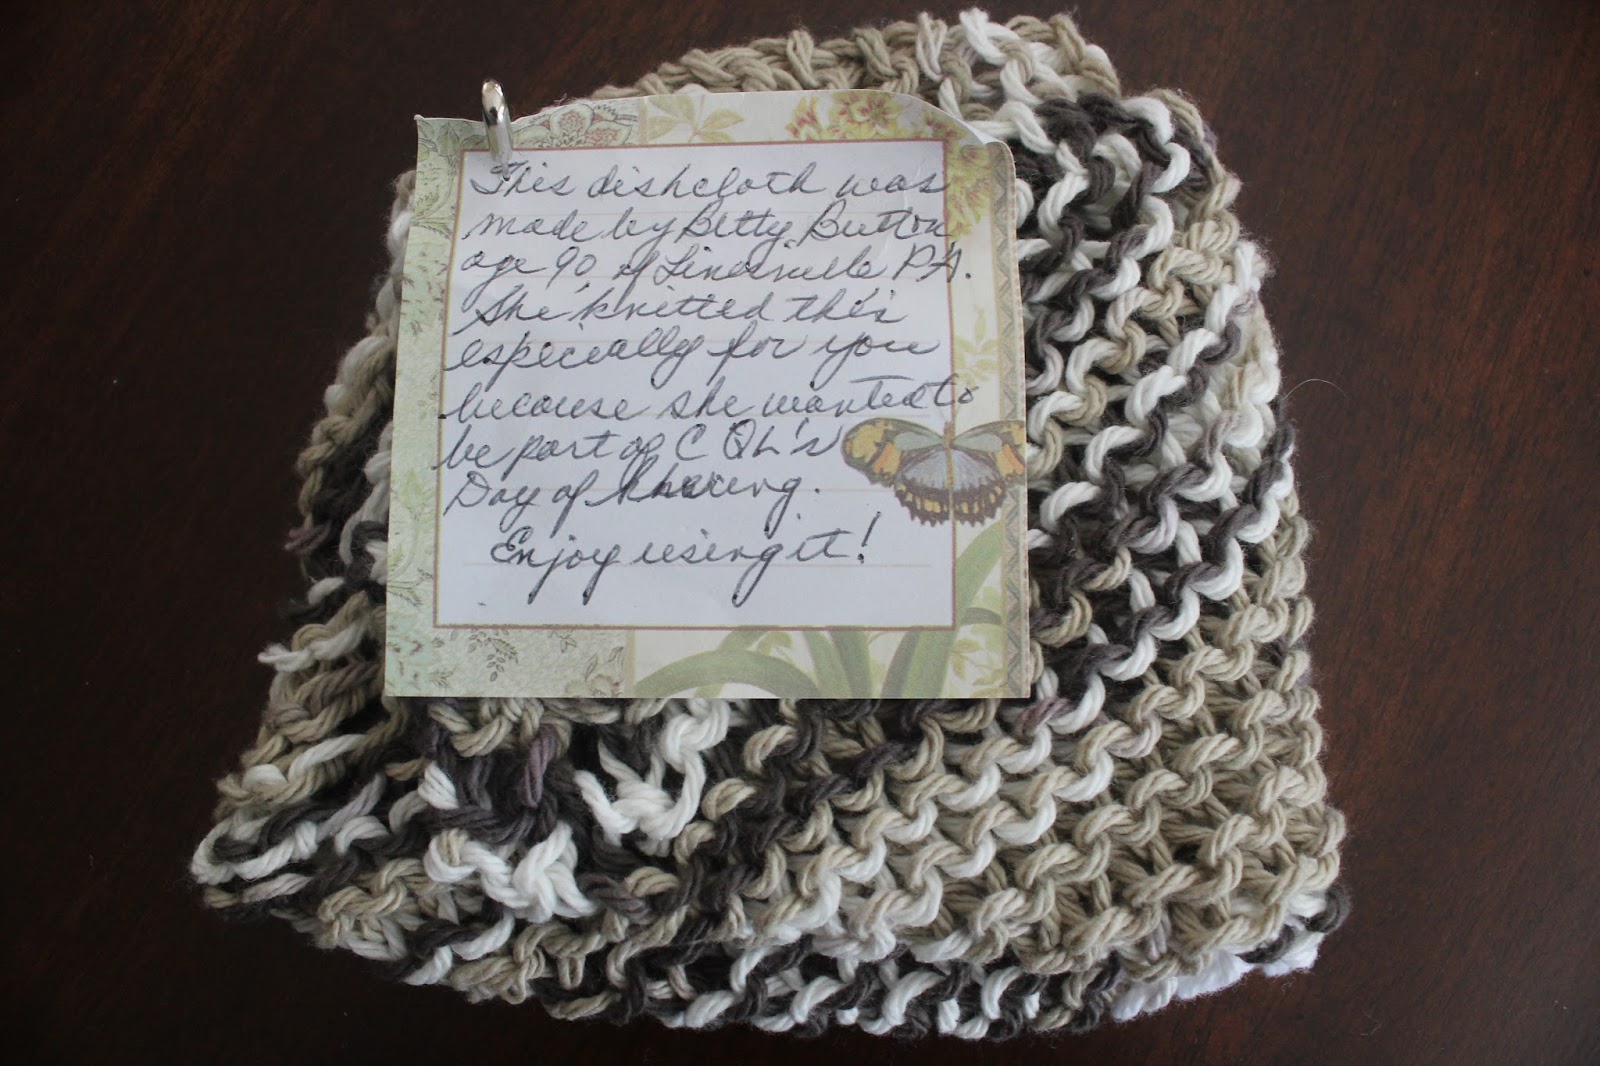 This dishcloth was
made by Betty Button
age 90 of Linesville PA.
She knitted this
especially for you
because she wanted to
be part of CQL's
Day of Sharing.
Enjoy using it!